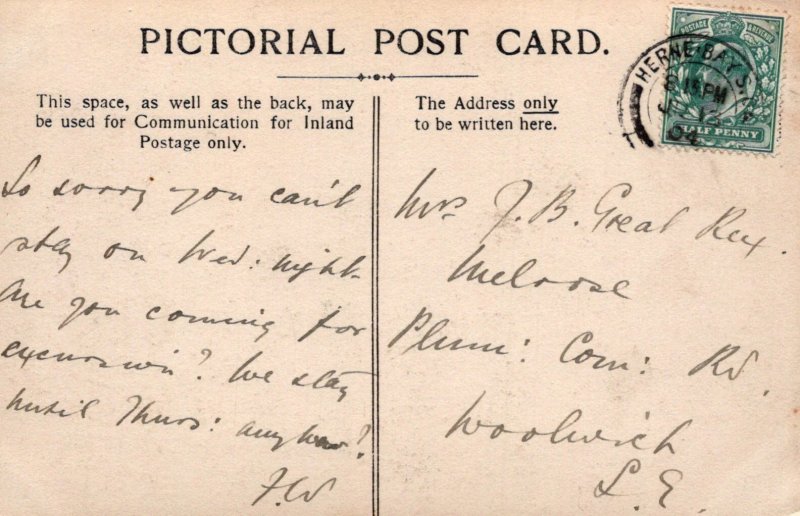 PICTORIAL POST CARD.
This space, as well as the back, may
be used for Communication for Inland
Postage only.
The Address only
to be written here.
POSTAGE & REVENUE
HALF PENNY
HERNE·BAY S.O
8 15 PM
12
04
So sorry you can't
stay on Wed: night.
Are you coming for
excursion? We stay
until Thurs: anyhow?
F.W
Mrs J. B. Great Rex.
Melrose
Plum: Com: Rd.
Woolwich
S. E.